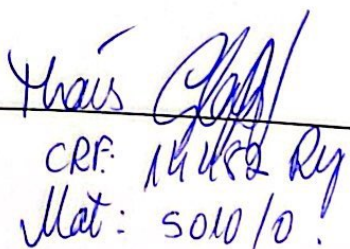 Thaís
CRF: 14452 RJ
Mat: 5010/0.